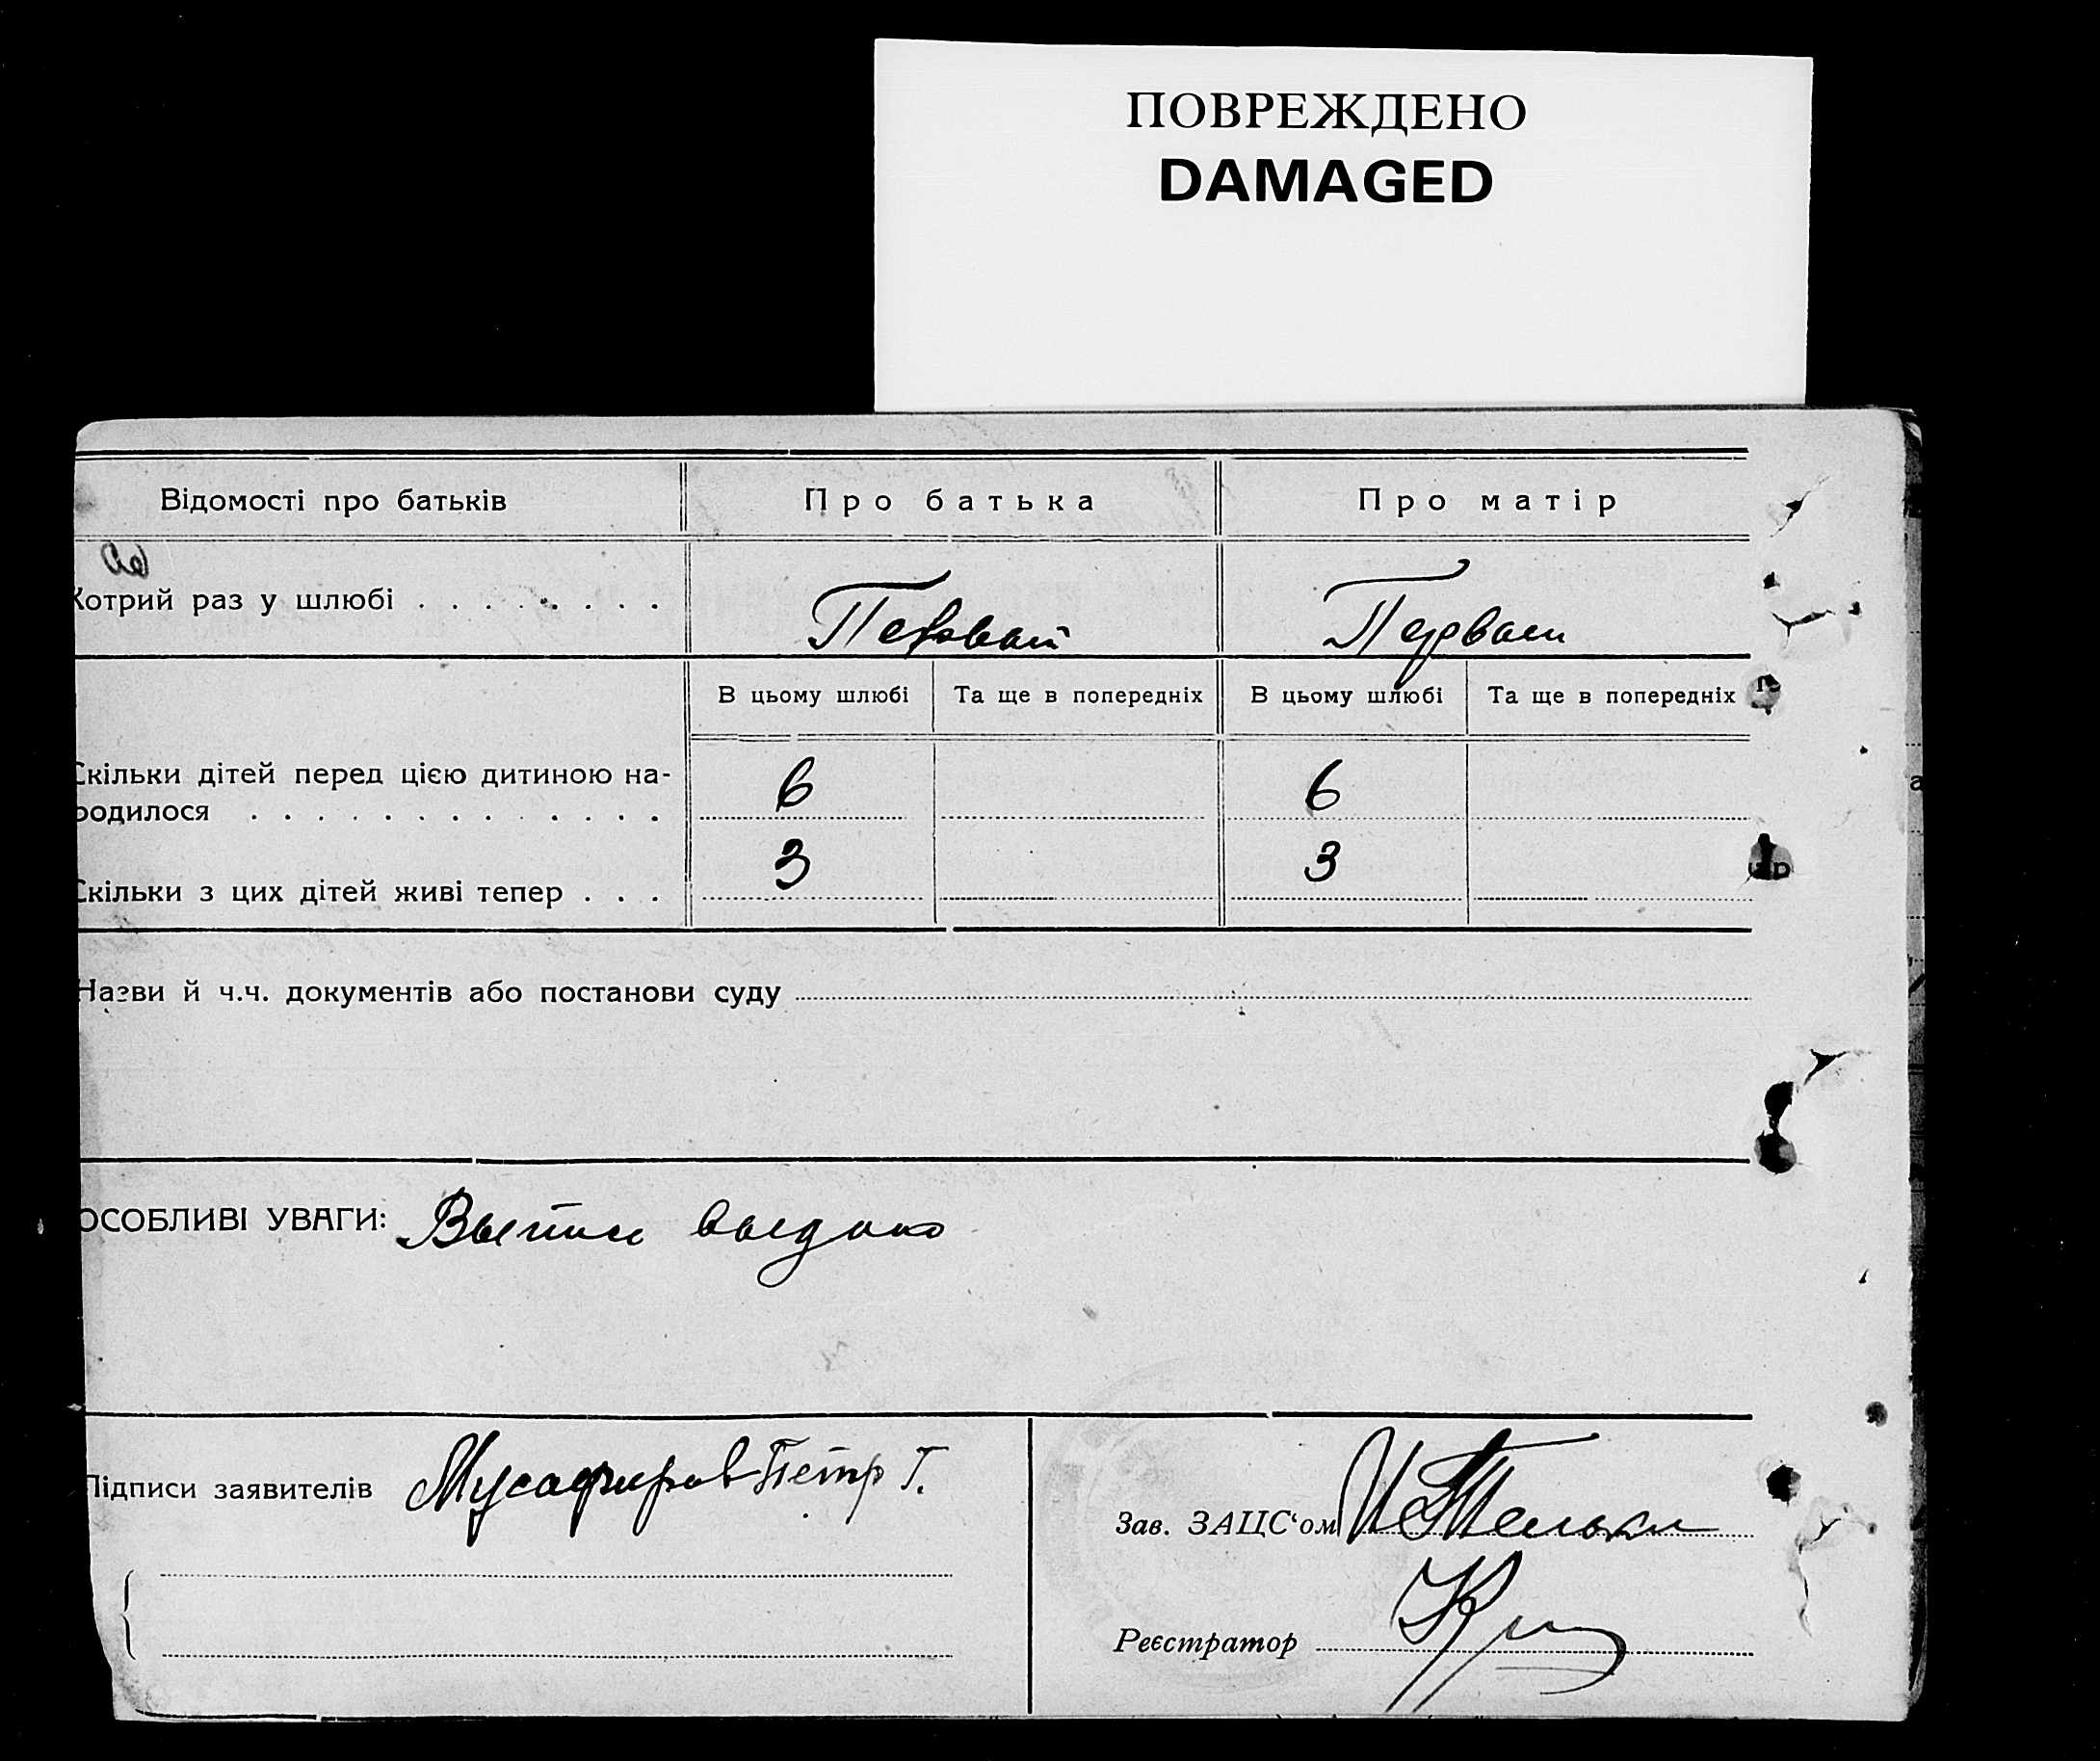 ПОВРЕЖДЕНО
DAMAGED
Відомості про батьків
Про батька
Про матір
Котрий раз у шлюбі . . . . . . . .
Первый
Первый
В цьому шлюбі
Та ще в попередніх
В цьому шлюбі
Та ще в попередніх
Скільки дітей перед цією дитиною на-
родилося . . . . . . . . . . . . .
6
6
Скільки з цих дітей живі тепер . . .
3
3
Назви й ч.ч. документів або постанови суду
ОСОБЛИВІ УВАГИ: Выпись выдано
Підписи заявителів Мусафиров Петр Г.
Зав. ЗАЦС'ом
Реєстратор